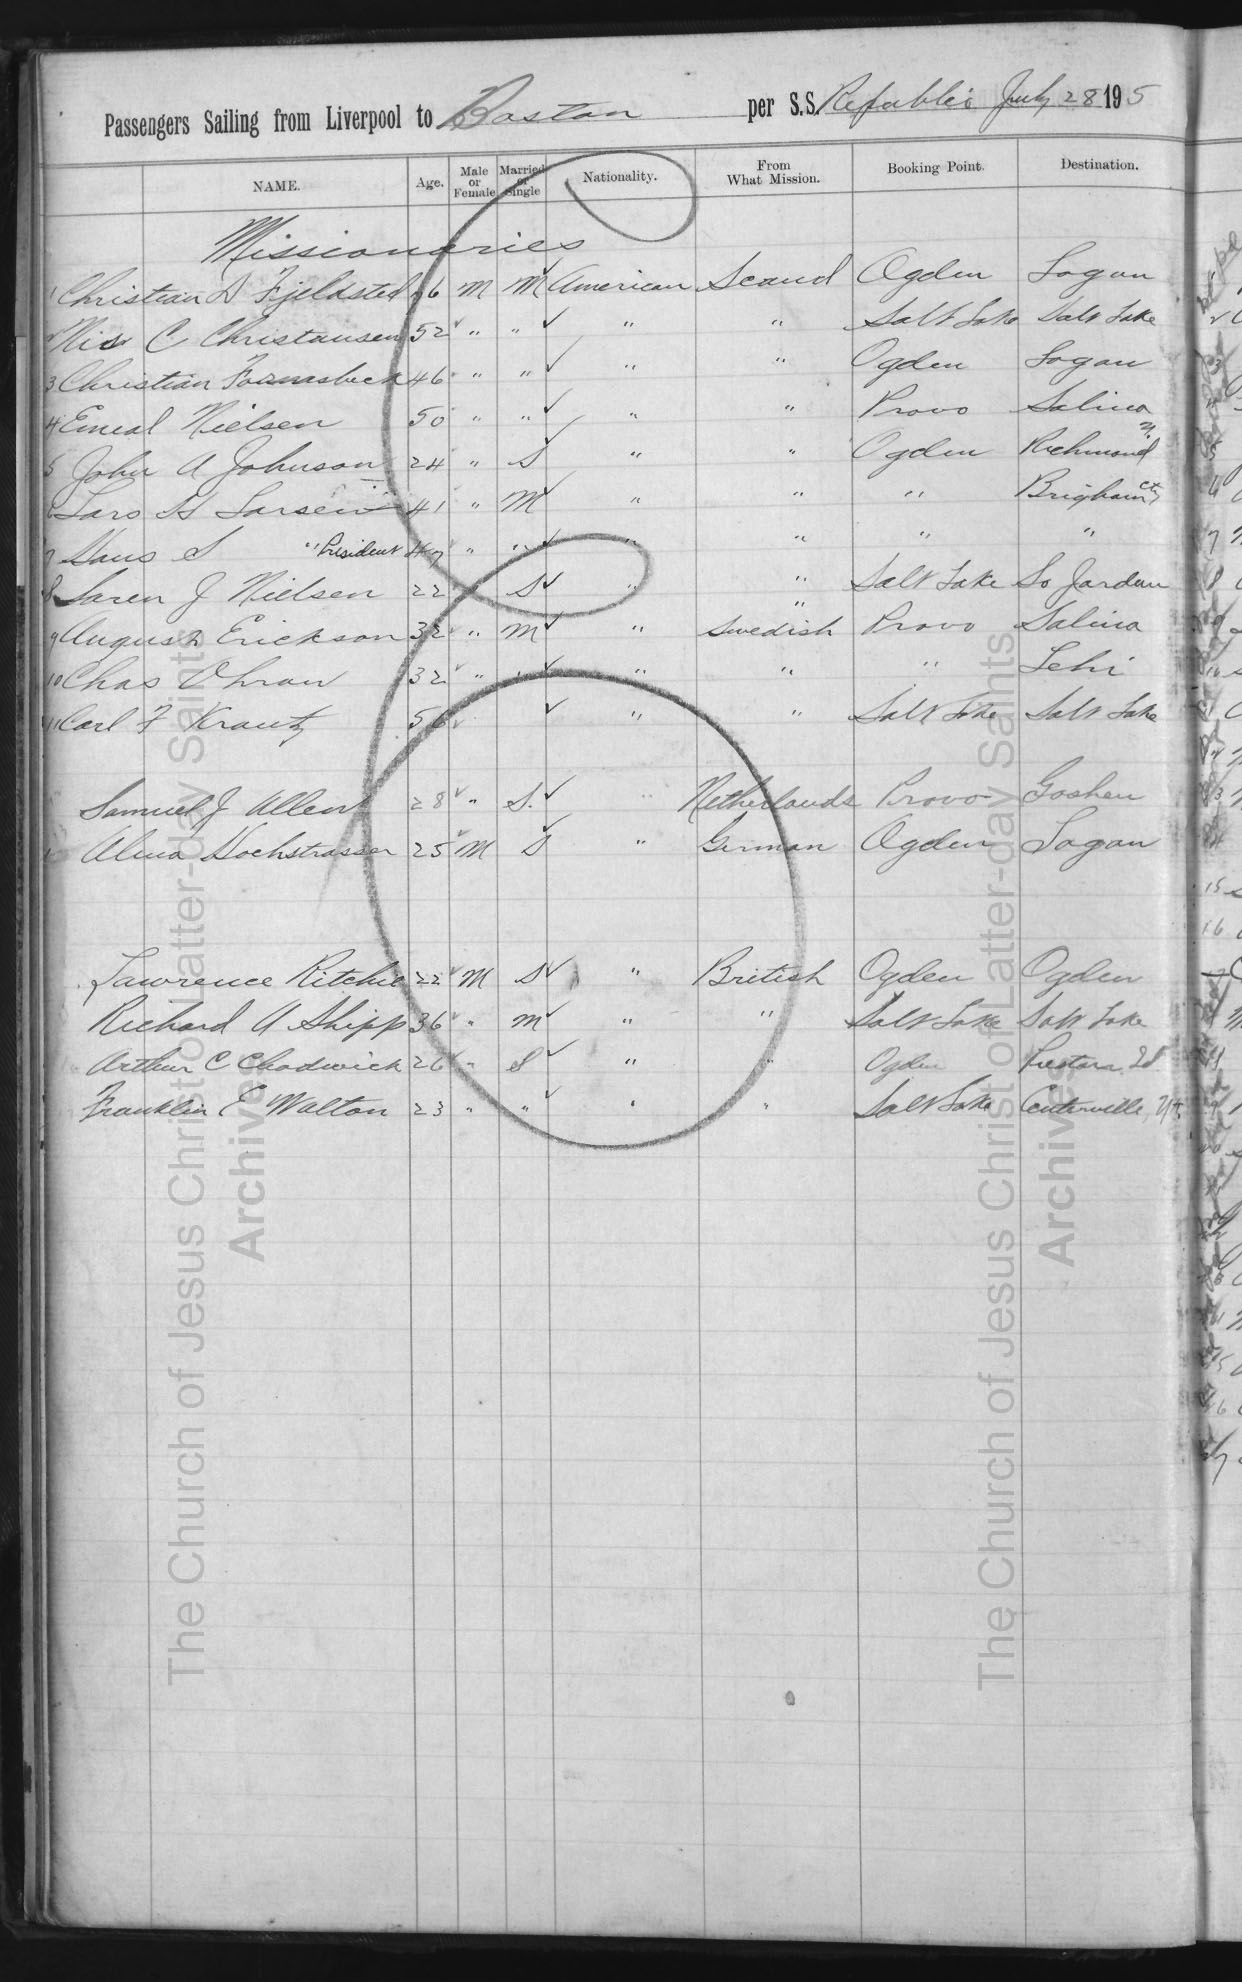 Passengers Sailing from Liverpool to Boston per S.S. Republic July 28 1905
NAME. Age. Male or Female Married or Single Nationality. From What Mission. Booking Point. Destination.
Missionaries
1 Christian D Fjeldsted 76 M M American Scand Ogden Logan
C Christansen 52 " " " " Salt Lake Salt Lake
3 Christian 46 " " " " Ogden Logan
4 Emeal Nielsen 50 " " " " Provo Salina
5 John A Johnson 24 " S " " Ogden Richmond
6 Lars H Larsen 41 " M " " " Brigham Cty
7 Hans S " President 47 " " " " " "
8 Soren J Nielsen 22 S " " Salt Lake So Jordan
9 August Erickson 32 " M " Swedish Provo Salina
10 Chas 32 " " " " " Lehi
11 Carl F Krantz 56 " " Salt Lake Salt Lake
Samuel J Allen 28 " S. " Netherlands Provo Goshen
1 Alma Hochstrasser 25 M S " German Ogden Logan
Lawrence Ritchie 22 M S " British Ogden Ogden
Richard A Shipp 36 " M " " Salt Lake Salt Lake
Arthur C Chadwick 26 " S " " Ogden Preston Id
Franklin E Walton 23 " " " " Salt Lake Centerville, Ut.
The Church of Jesus Christ of Latter-day Saints
Archives
The Church of Jesus Christ of Latter-day Saints
Archives